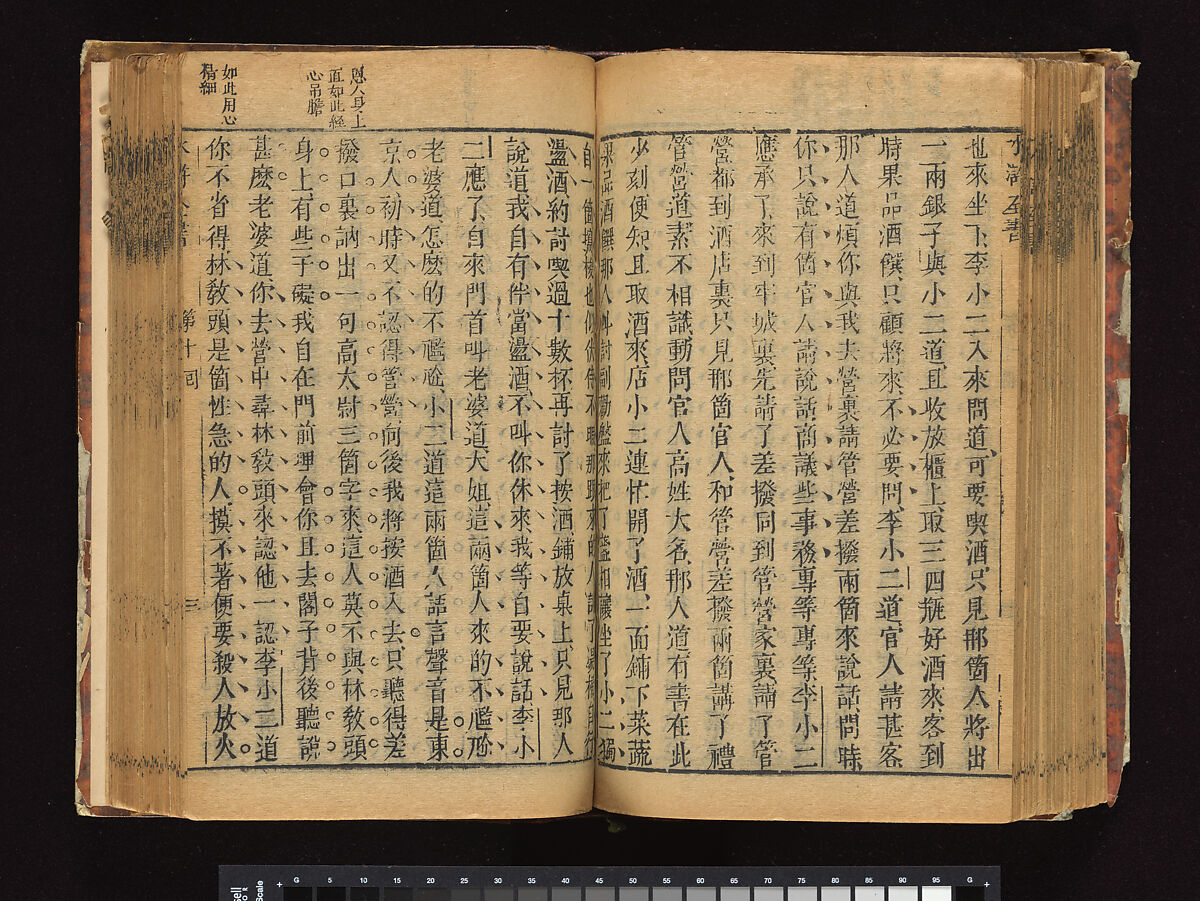 水滸全書
也來坐下李小二入來問道可要喫酒只見那箇人將出
一兩銀子與小二道且收放櫃上取三四瓶好酒來客到
時果品酒饌只顧將來不必要問李小二道官人請甚客
那人道煩你與我去營裏請管營差撥兩箇來說話問時
你只說有箇官人請說話商議些事務專等專等李小二
應承了來到牢城裏先請了差撥同到管營家裏請了管
營都到酒店裏只見那箇官人和管營差撥兩箇講了禮
管營道素不相識動問官人高姓大名那人道有書在此
少刻便知且取酒來店小二連忙開了酒一面鋪下菜蔬
果品酒饌那人叫討副勸盤來把了盞相讓坐了小二獨
自一箇攛梭也似伏侍不暇那跟來的人討了湯桶自行
盪酒約計喫過十數杯再討了按酒鋪放桌上只見那人
說道我自有伴當盪酒不叫你休來我等自要說話李小
二應了自來門首叫老婆道大姐這兩箇人來的不尷尬
老婆道怎麽的不尷尬小二道這兩箇人語言聲音是東
京人初時又不認得管營向後我將按酒入去只聽得差
撥口裏訥出一句高太尉三箇字來這人莫不與林教頭
身上有些干礙我自在門前理會你且去閣子背後聽說
甚麽老婆道你去營中尋林教頭來認他一認李小二道
你不省得林教頭是箇性急的人摸不著便要殺人放火
恩人身上
面如此經
心吊膽
如此用心
精細
水滸全書 第十回 三
G 5 10 15 20 25 30 35 40 45 50 55 60 65 70 75 80 85 90 95 G